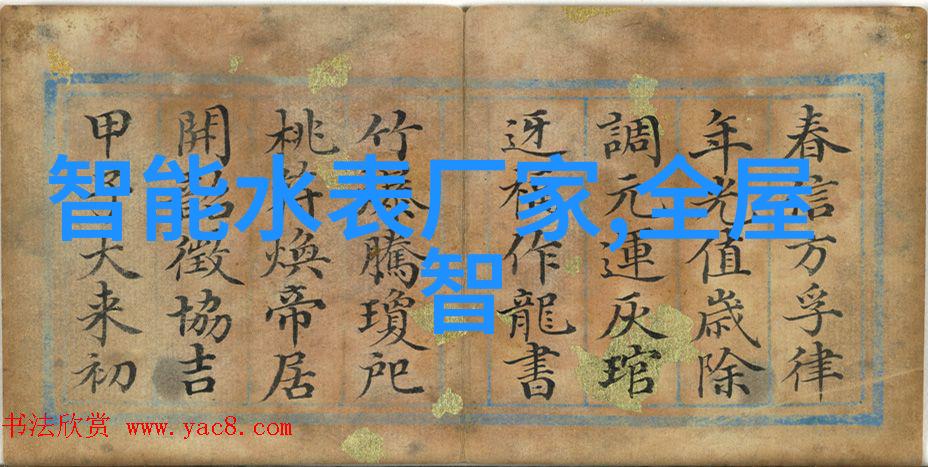 春信方孚律
年光值歲除
調元運灰琯
迓福作龍書
竹爆騰瓊祀
桃符煥帝居
開徵協吉
甲大来初
智能水表厂家,全屋
智
书法欣赏 www.yac8.com